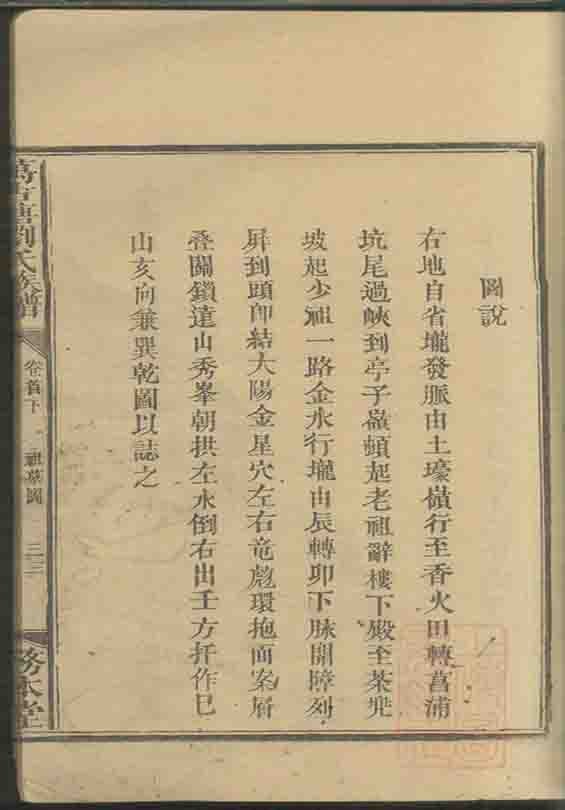 圖說
右地自省壠發脈由土壕橫行至香火田轉菖蒲
坑尾過峽到亭子嶺頓起老祖辭樓下殿至茶兜
坡起少祖一路金水行壠由辰轉卯下脉開障列
屏到頭卽結大陽金星穴左右竜彪環抱面案層
叠關鎖遠山秀峯朝拱左水倒右出壬方扦作巳
山亥向兼巽乾圖以誌之
萬古塘劉氏族譜
卷首下
祖墓圖
三三
務本堂